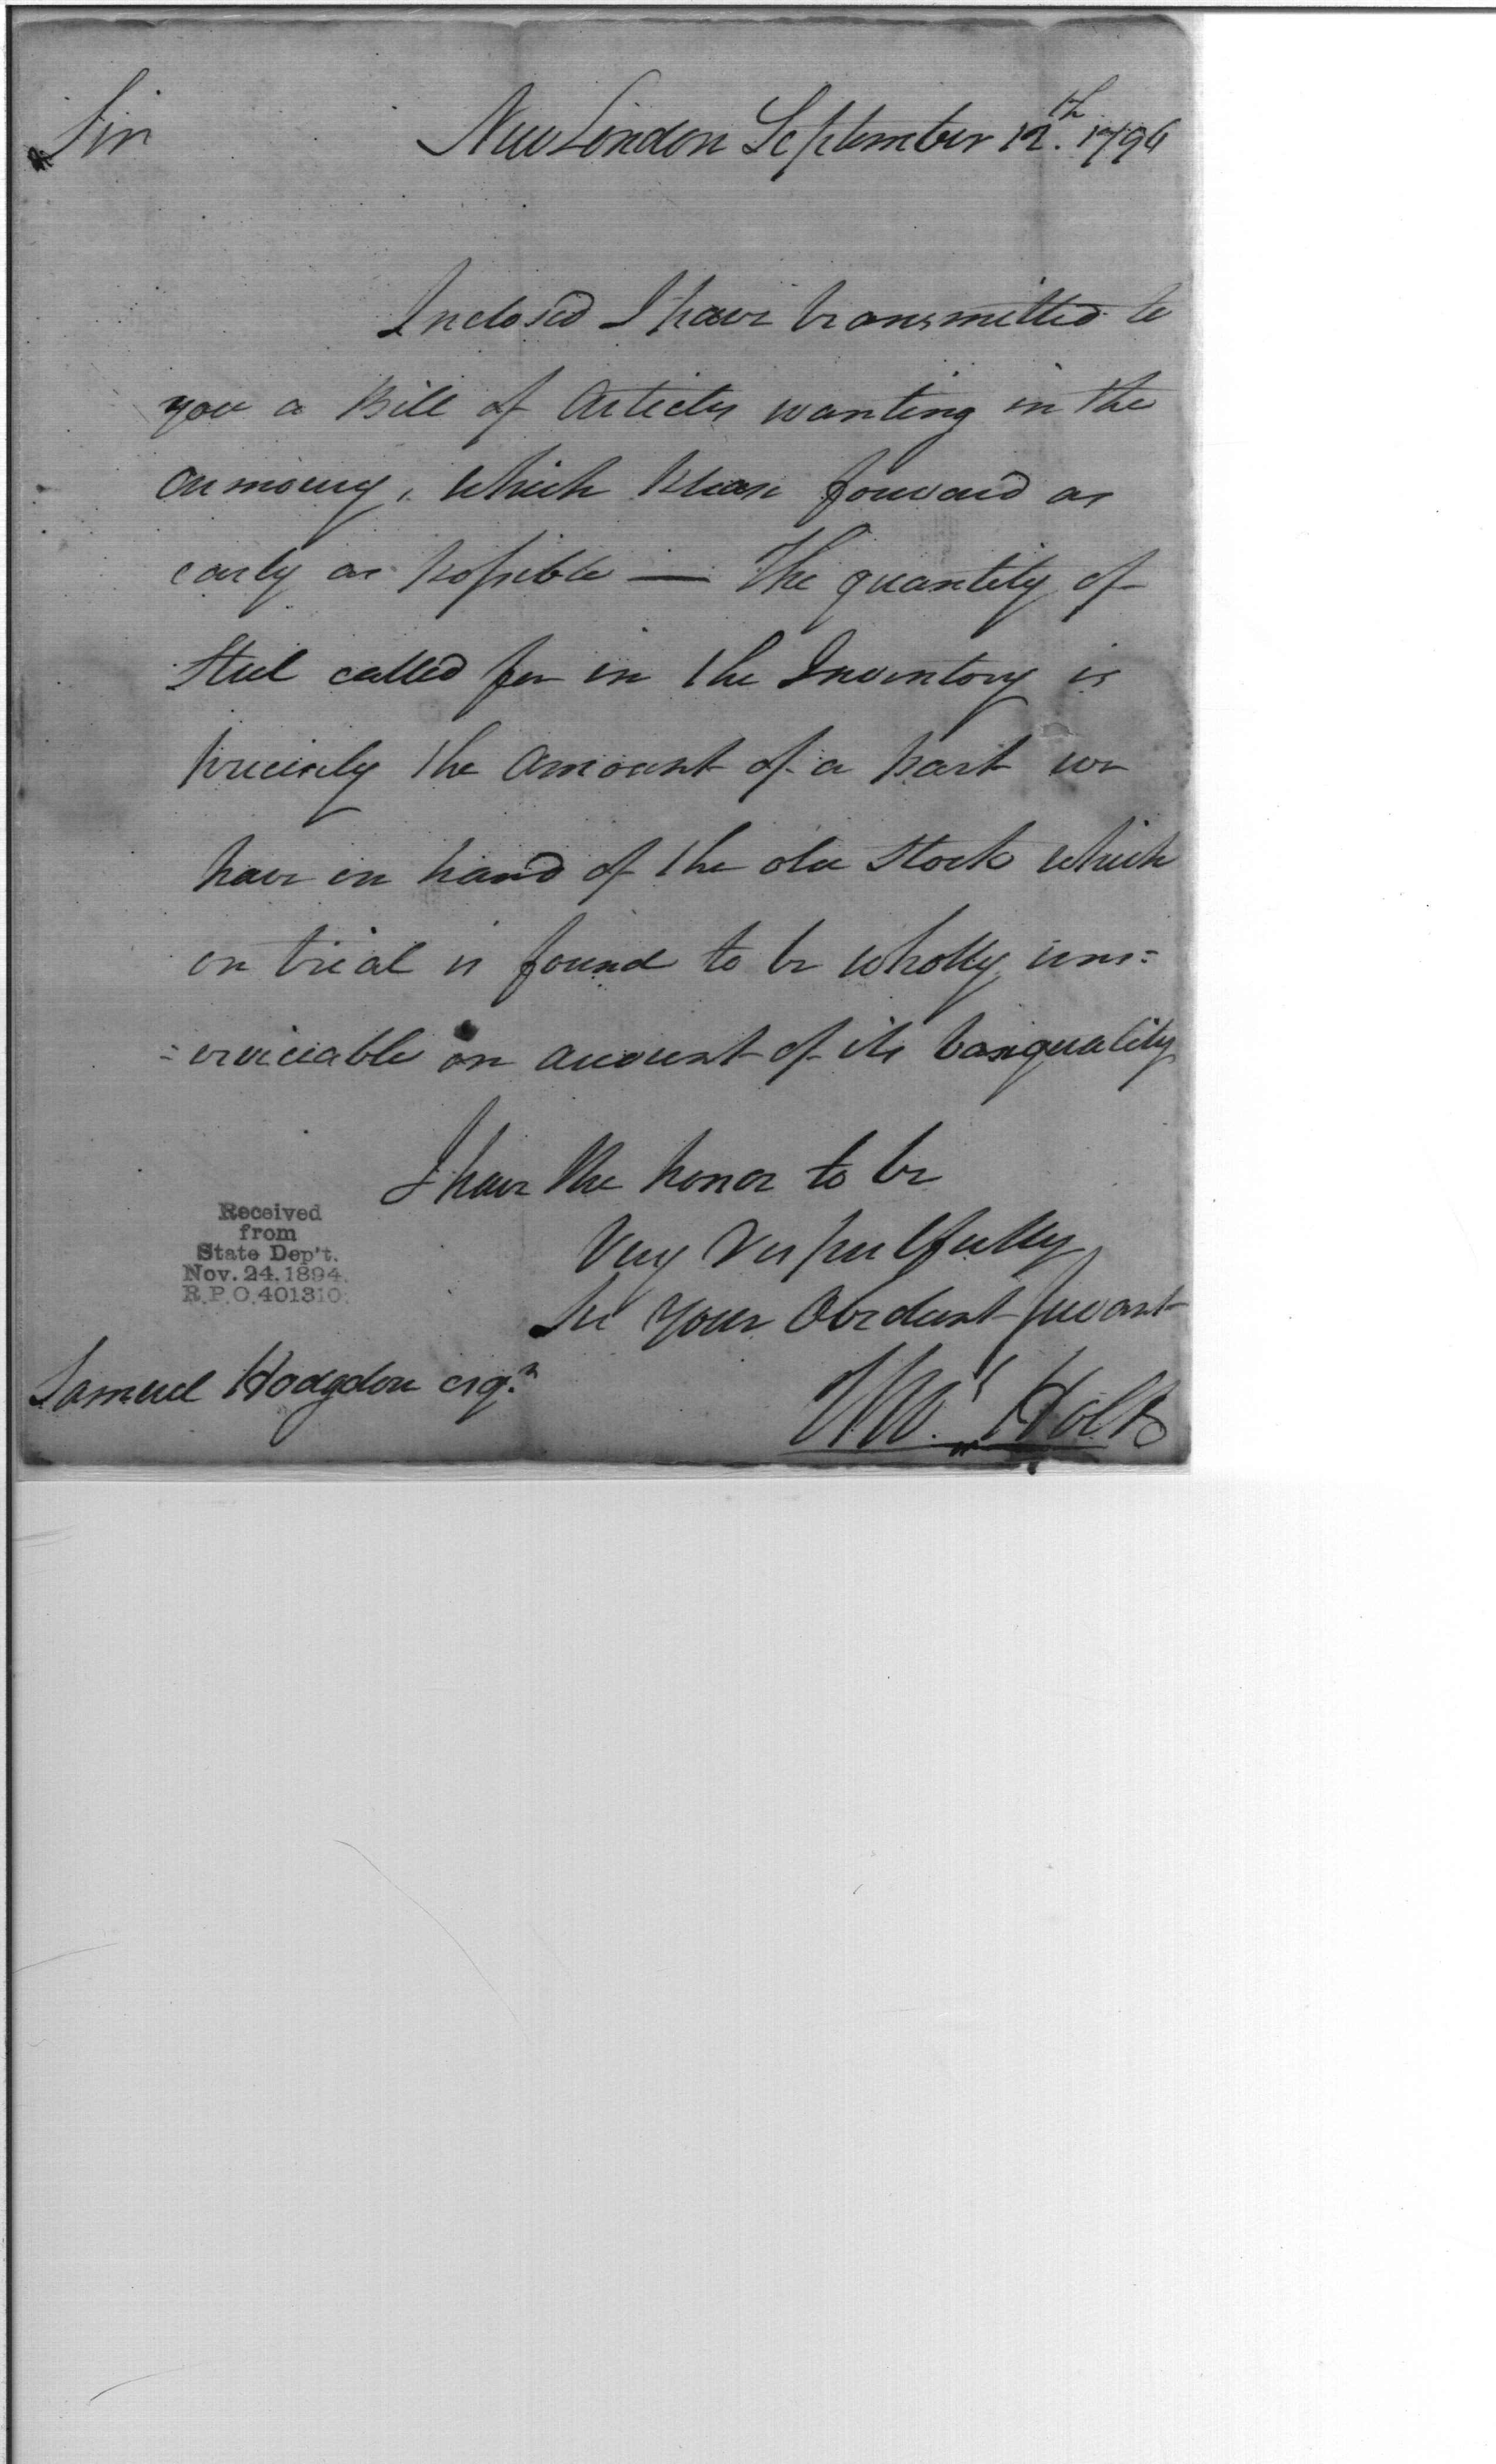 Sir
New London September 12th. 1796
Inclosed I have transmitted to
you a Bill of Articles wanting in the
armoury, which please forward as
early as possible — The quantity of
Steel called for in the Inventory is
precisely the amount of a part we
have on hand of the old Stock which
on trial is found to be wholly uns=
=erviceable on account of its bad quality
I have the honor to be
Very respectfully
Sir your Obedient Servant
Thos. Holt
Samuel Hodgdon esqr.
Received
from
State Dep't.
Nov. 24. 1894.
R.P.O. 401310.